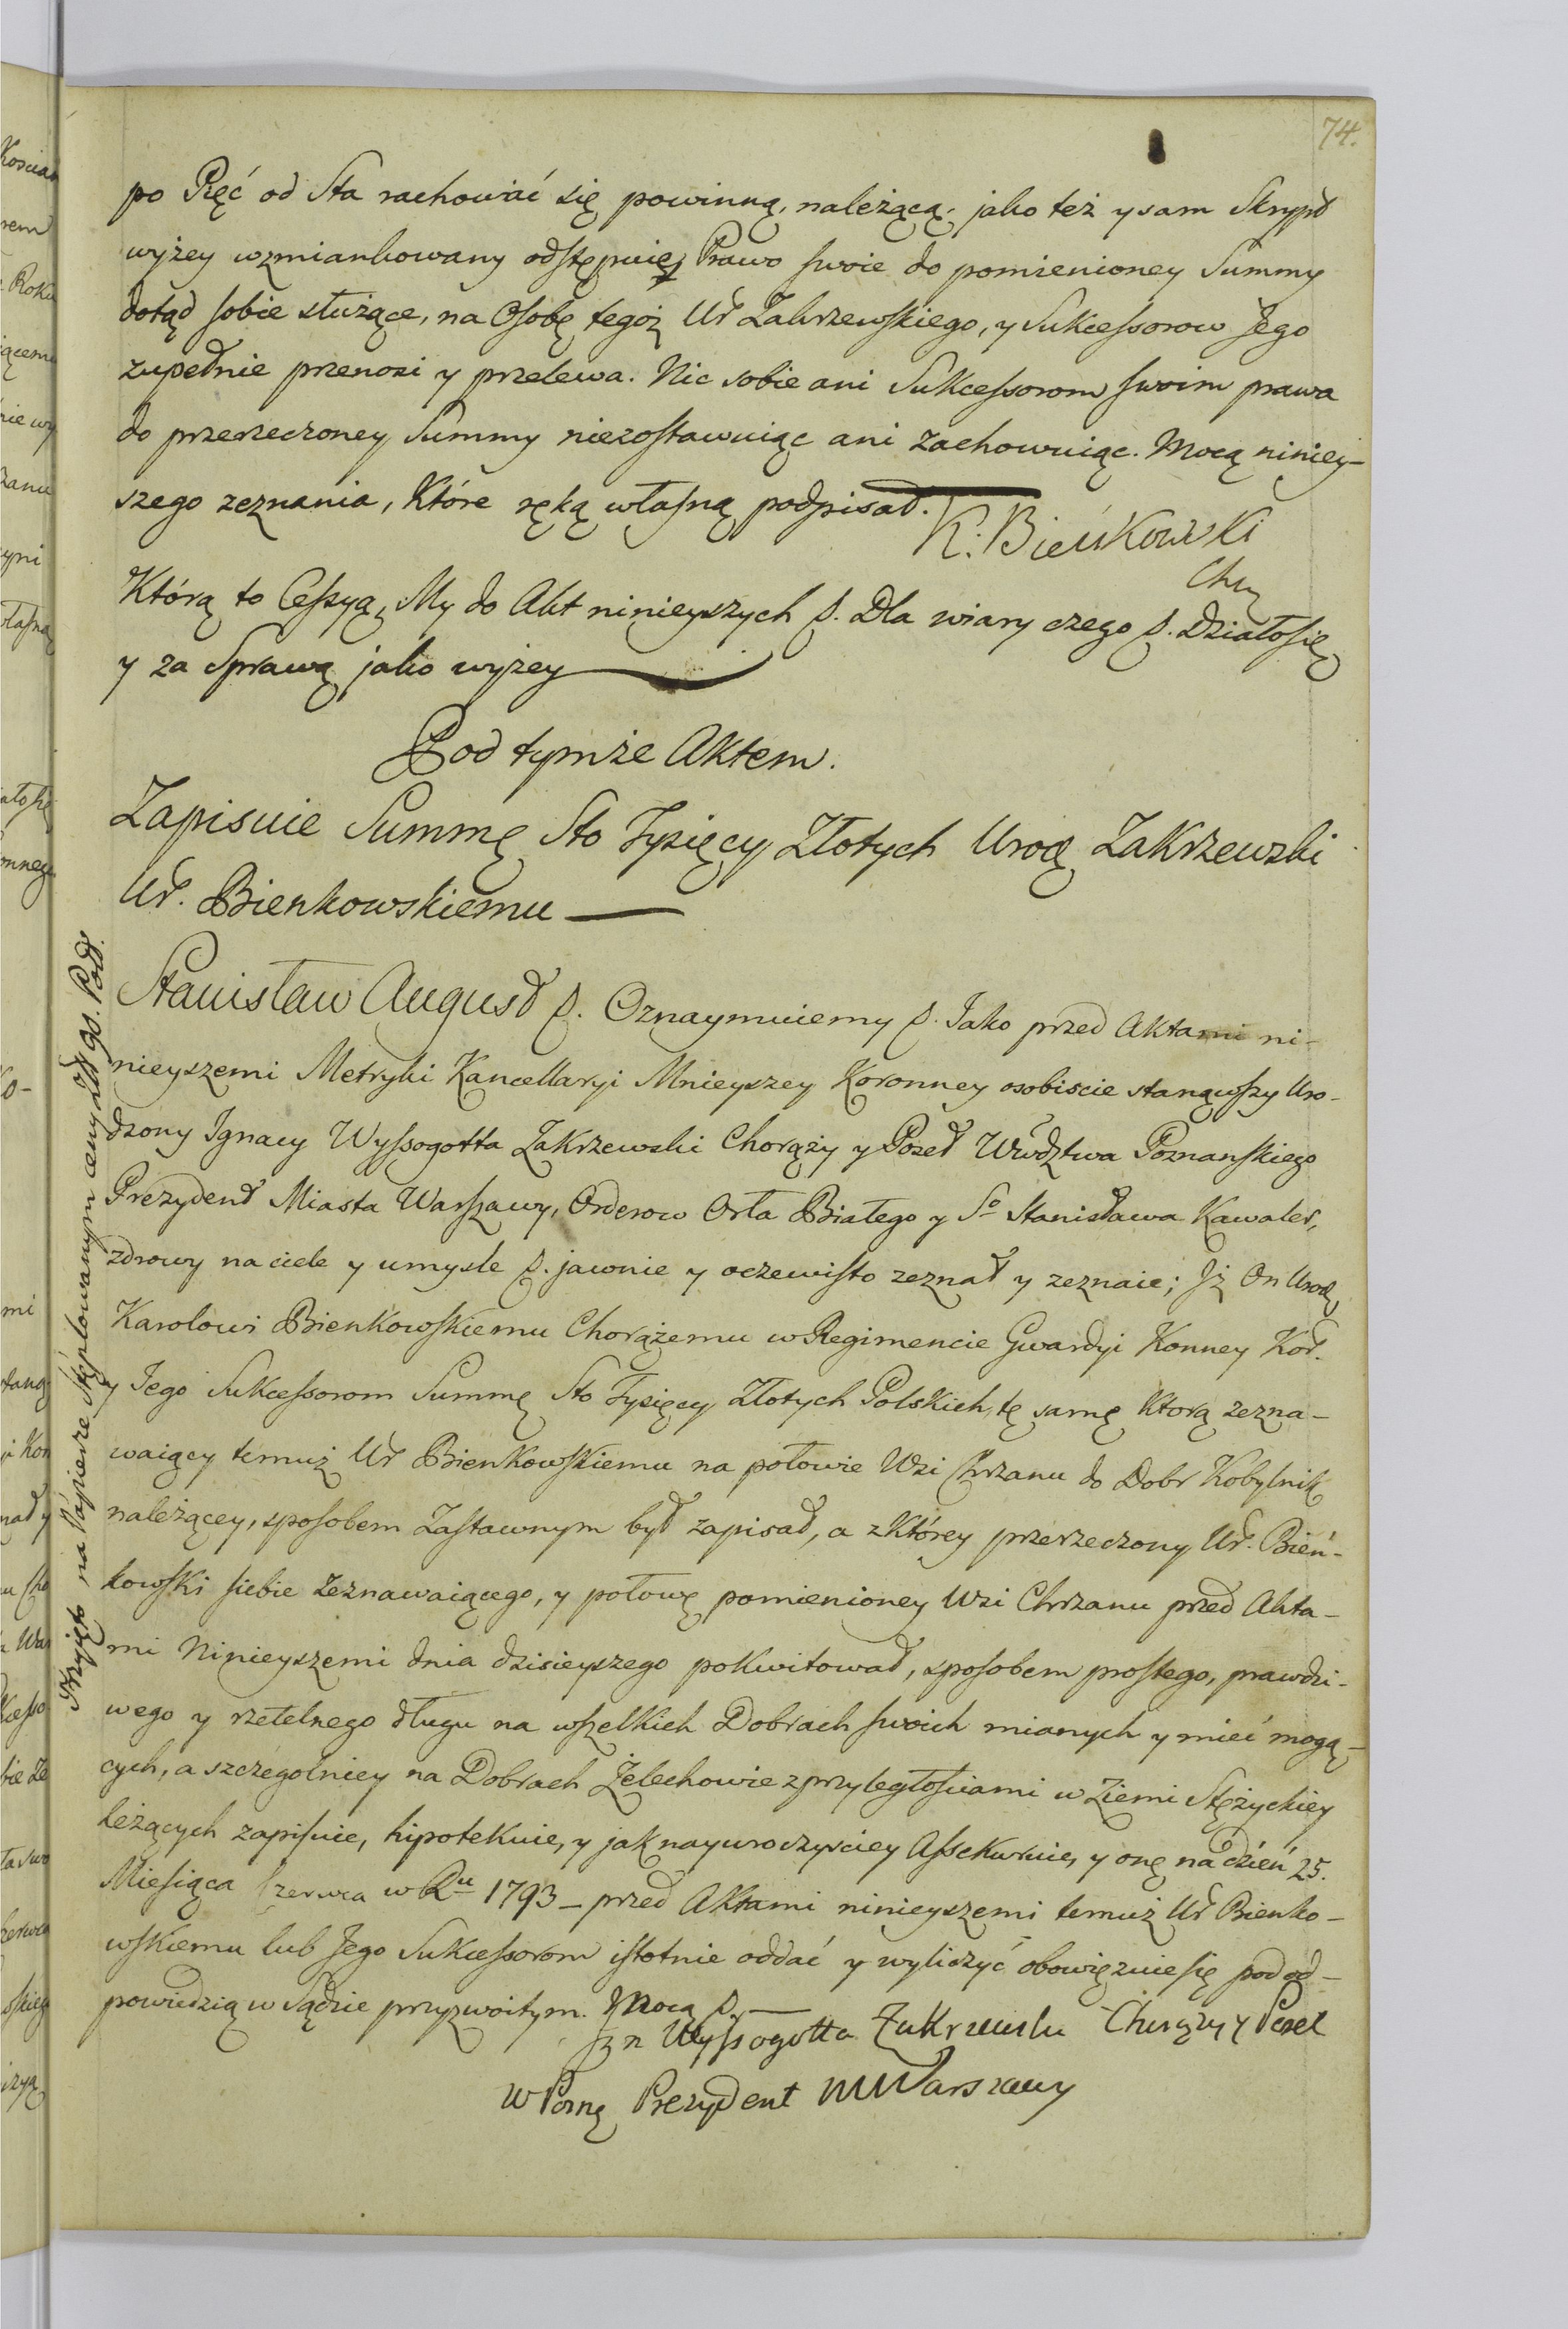 74.
po Pięć od Sta rachować się powinną, należącą; jako też y sam Skrypt
wyżey wzmiankowany odstępuie, Prawo swoie do pomienioney Summy
dotąd sobie służące, na Osobę tegoż Ur Zakrzewskiego, y Sukcessorow Jego
zupełnie przenosi y przelewa. Nic sobie ani Sukcessorom swoim prawa
do przerzeczoney Summy niezostawuiąc ani zachowuiąc. Mocą niniey-
szego zeznania, Które ręką własną podpisał.
K: Bieńkowski
Chrż
Którą to Cessyą, My do Akt ninieyszych p. Dla wiary czego p. Działosię
y za Sprawą jako wyżey
Pod tymże Aktem.
Zapisuie Summę Sto Tysięcy Złotych Urodz Zakrzewski
Ur. Bienkowskiemu
Stanisław August p. Oznaymuiemy p. Jako przed Aktami ni-
nieyszemi Metryki Kancellaryi Mnieyszey Koronney osobiscie stanąwszy Uro-
dzony Ignacy Wyssogotta Zakrzewski Chorąży y Poseł Wwdztwa Poznanskiego
Prezydent Miasta Warszawy, Orderow Orła Białego y So Stanisława Kawaler,
zdrowy na ciele y umysle p. jawnie y oczewisto zeznał y zeznaie; Jż On Urodz
Karolowi Bienkowskiemu Chorążemu w Regimencie Gwardyi Konney Kor.
y Jego Sukcessorom Summę Sto Tysięcy Złotych Polskich, tę samę Ktorą zezna-
waiący temuż Ur Bienkowskiemu na połowie Wsi Chrzanu do Dobr Kobylnik
należącey, sposobem Zastawnym był zapisał, a zKtórey przerzeczony Ur. Bień-
kowski siebie Zeznawaiącego, y połowę pomienioney Wsi Chrzanu przed Akta-
mi Ninieyszemi dnia dzisieyszego pokwitował, sposobem prostego, prawdzi-
wego y rzetelnego długu na wszelkich Dobrach swoich mianych y mieć mogą-
cych, a szczegolniey na Dobrach Żelechowie z przyległościami w Ziemi Stężyckiey
leżących zapisuie, hipotekuie, y jak nayuroczysciey Assekuruie, y onę na dzień 25.
Miesiąca Czerwca w Ru 1793 – przed Aktami ninieyszemi temuż Ur Bienko-
wskiemu lub Jego Sukcessorom istotnie oddać y wyliczyć obowięzuie się pod od-
powiedzią w Sądzie przyzwoitym. Mocą p.
Jgn Wyssogotta Zakrzewski Chorąży y Poseł
W Pozną Prezydent M Warszawy
Przyjęto na Papierze Stęplowanym ceny Zł gr. Pod.